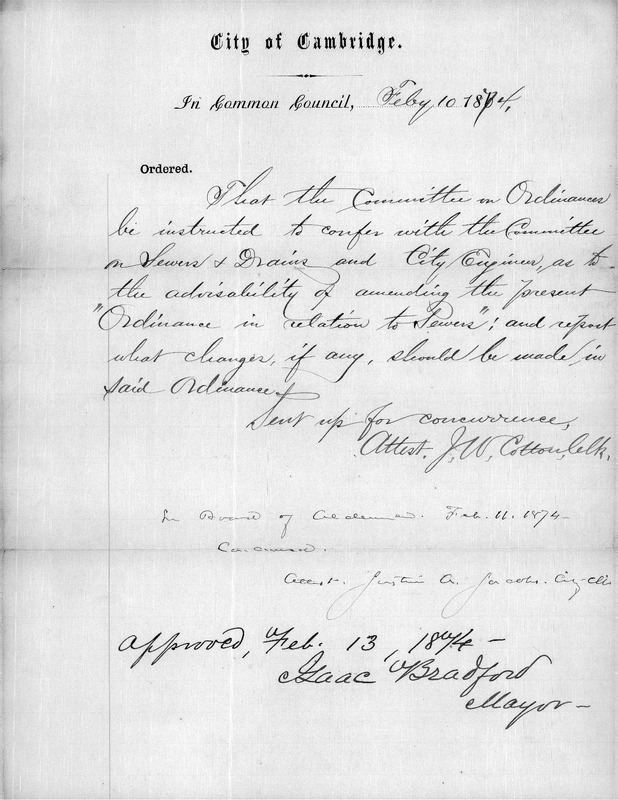 City of Cambridge.
In Common Council, Feby 10 1874,
Ordered.
That the Committee on Ordinances
be instructed to confer with the Committee
on Sewers & Drains and City Engineer, as to
the advisability of amending the present
"Ordinance in relation to Sewers"; and report
what changes, if any, should be made in
said Ordinance.
Sent up for concurrence,
Attest. J. W. Cotton, Clk.
In Board of Aldermen. Feb. 11. 1874
Concurred.
Attest. Justin A. Jacobs. City Clk
Approved, Feb. 13, 1874 -
Isaac Bradford
Mayor -